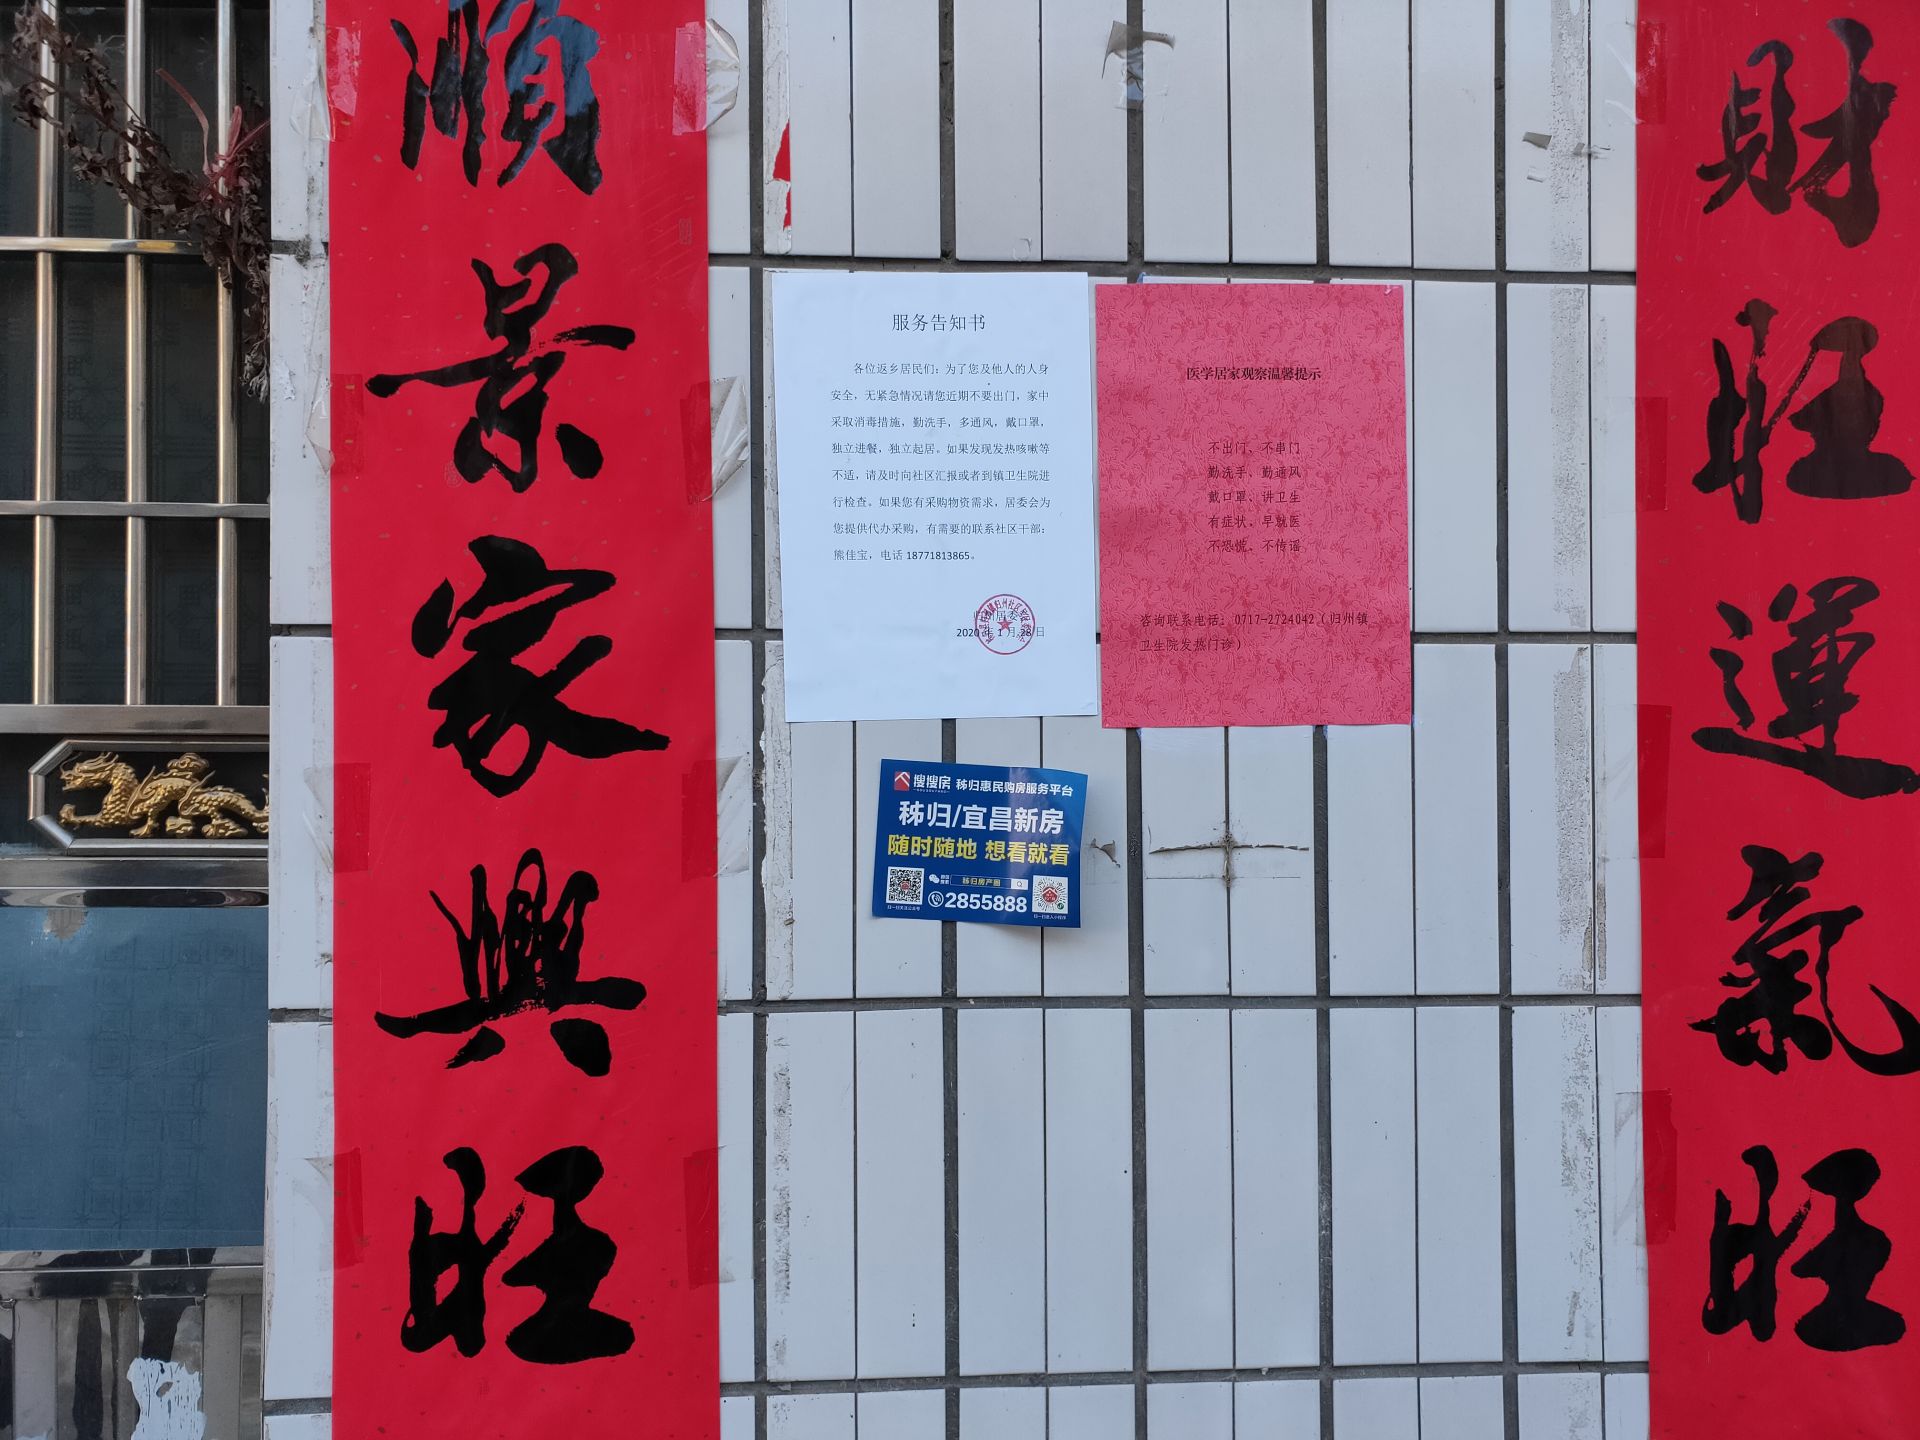 順
景
家
興
旺
服务告知书
各位返乡居民们：为了您及他人的人身
安全，无紧急情况请您近期不要出门，家中
采取消毒措施，勤洗手，多通风，戴口罩，
独立进餐，独立起居。如果发现发热咳嗽等
不适，请及时向社区汇报或者到镇卫生院进
行检查。如果您有采购物资需求，居委会为
您提供代办采购，有需要的联系社区干部：
熊佳宝，电话 18771813865。
归州居委会
2020 年 1 月 28 日
医学居家观察温馨提示
不出门、不串门
勤洗手、勤通风
戴口罩、讲卫生
有症状，早就医
不恐慌、不传谣
咨询联系电话：0717-2724042（归州镇
卫生院发热门诊）
搜搜房 秭归惠民购房服务平台
秭归/宜昌新房
随时随地 想看就看
秭归房产圈
2855888
財
旺
運
氣
旺